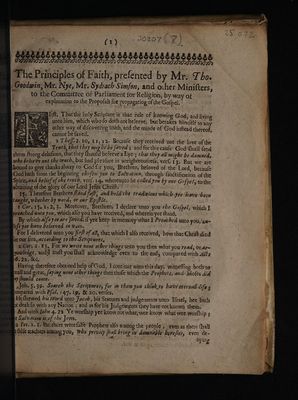 (1)
The Principles of Faith, presented by Mr. Tho.
Goodwin, Mr. Nye, Mr. Sydrach Simson, and other Ministers,
to the Committee of Parliament for Religion, by way of
explanation to the Proposals for propagating of the Gospel.
First. That the holy Scripture is that rule of knowing God, and living
unto him, which who so doth not believe, but betakes himself to any
other way of discovering truth, and the minde of God instead thereof,
cannot be saved.
2 Thess. 2. 10, 11, 12. Because they received not the love of the
truth, that they might be saved: and for this cause God shall send
them strong delusion, that they should believe a lye; that they all might be damned,
who believe not the truth, but had pleasure in unrighteousness; vers. 13. But we are
bound to give thanks alway to God for you, Brethren, beloved of the Lord, because
God hath from the beginning chosen you to Salvation, through sanctification of the
Spirit, and belief of the truth, ver. 14. whereunto he called you by our Gospel, to the
obtaining of the glory of our Lord Jesus Christ.
15. Therefore Brethren stand fast, and hold the traditions which ye have been
taught, whether by word, or our Epistle.
1 Cor. 15. 1, 2, 3. Moreover, Brethren, I declare unto you the Gospel, which I
preached unto you, which also you have received, and wherein yee stand,
By which also yee are saved, if yee keep in memory what I preached unto you,
For I delivered unto you first of all, that which I also received, how that Christ died
for our sins, according to the Scriptures.
2 Cor. 1. 13. For we write none other things unto you then what you read, or
knowledge, and I trust you shall acknowledge even to the end, compared with
Having therefore obtained help of God, I continue unto this day, witnessing both to
small and great, saying none other things then those which the Prophets, and Moses did
say should come.
Joh. 5. 39. Search the Scriptures, for in them you think to have eternal life;
compared with Psal. 147. 19, & 20. verses.
He sheweth his word unto Jacob, his statutes and judgements unto Israel, he hath
not dealt so with any Nation; and as for his judgements they have not known them.
And with John 4. 22 Ye worship yee know not what, wee know what wee worship;
for Salvation is of the Jews.
2 Pet. 2. 1. But there were false Prophets also among the people, even as there shall
be false teachers among you, who privily shall bring in damnable heresies, even de-
nying